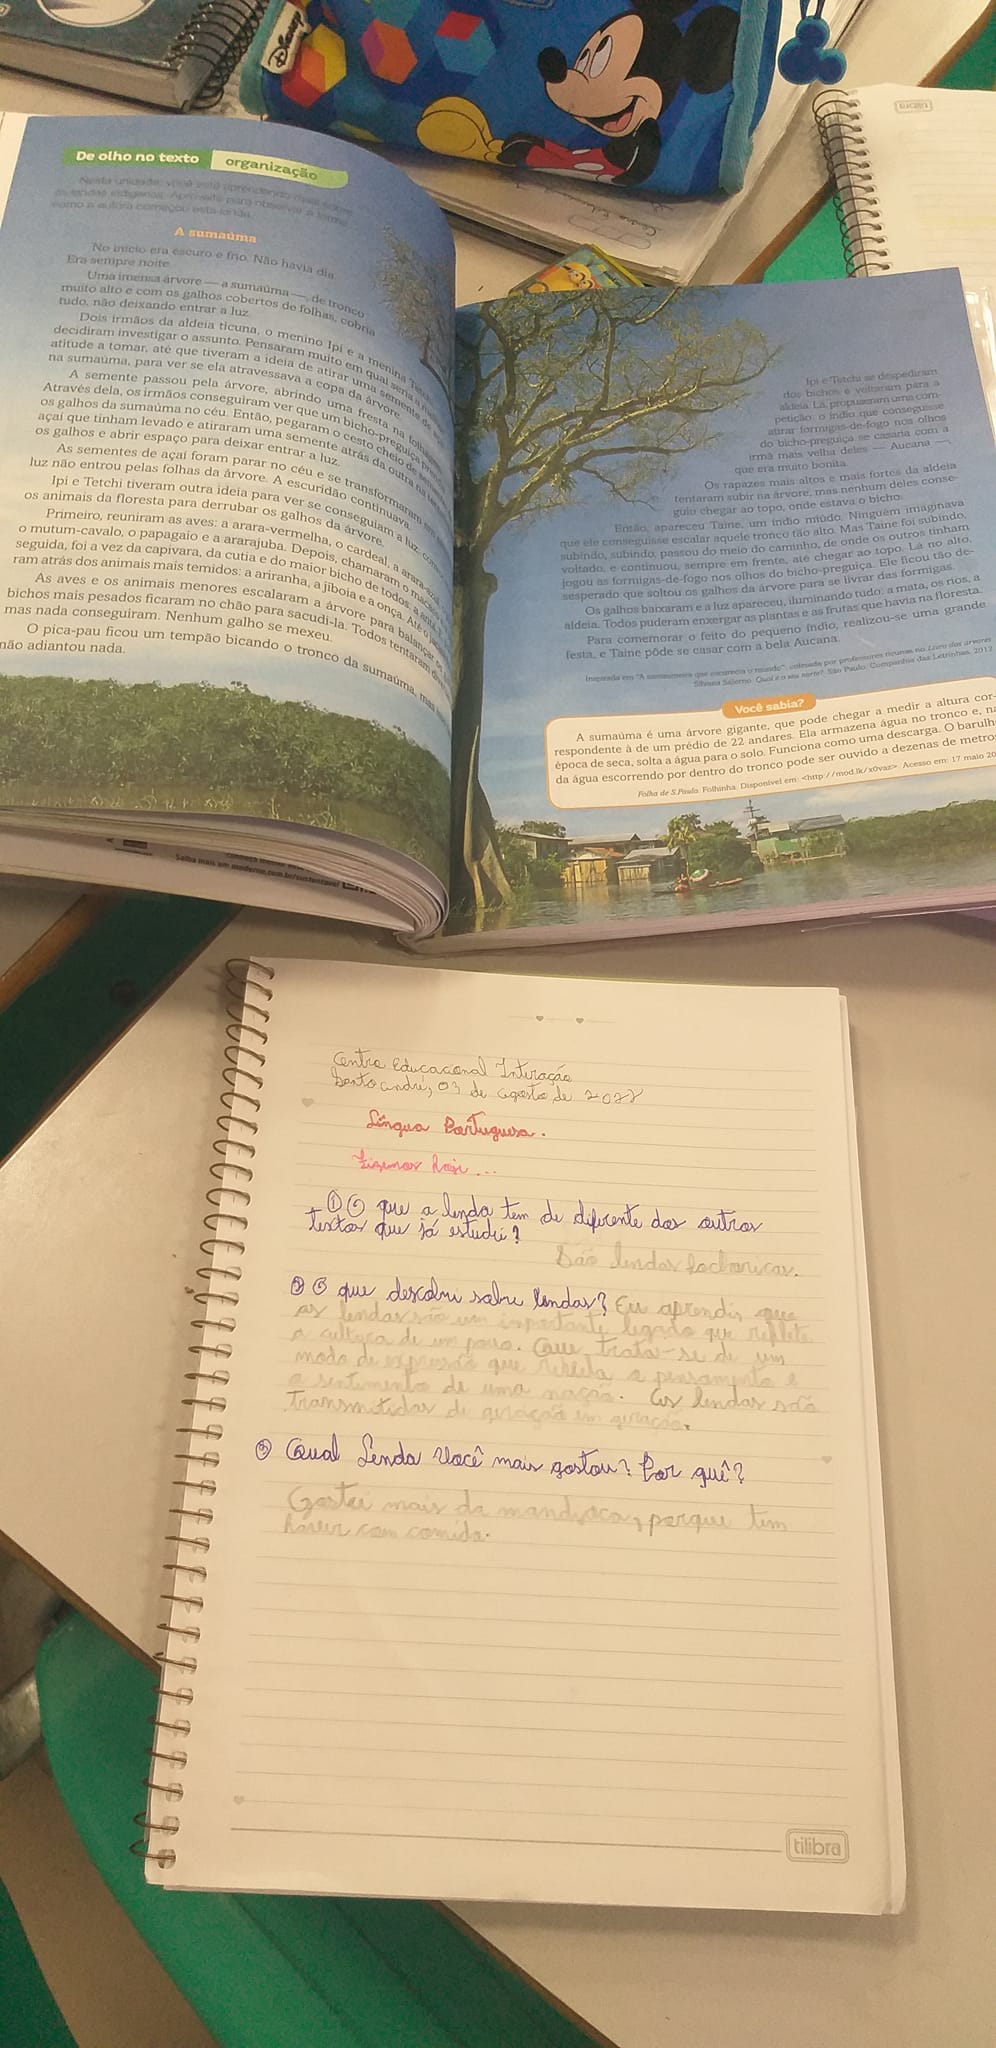 Disney
De olho no texto organização
Nesta unidade, você está aprendendo mais sobre
as lendas indígenas. Aproveite para observar a forma
como a autora começou esta lenda.
A sumaúma
No início era escuro e frio. Não havia dia.
Era sempre noite.
Uma imensa árvore — a sumaúma —, de tronco
muito alto e com os galhos cobertos de folhas, cobria
tudo, não deixando entrar a luz.
Dois irmãos da aldeia ticuna, o menino Ipi e a menina
decidiram investigar o assunto. Pensaram muito em qual seria a
atitude a tomar, até que tiveram a ideia de atirar uma semente de
na sumaúma, para ver se ela atravessava a copa da árvore.
A semente passou pela árvore, abrindo uma fresta na
Através dela, os irmãos conseguiram ver que um bicho-preguiça
os galhos da sumaúma no céu. Então, pegaram o cesto cheio de
açaí que tinham levado e atiraram uma semente atrás da outra na
os galhos e abrir espaço para deixar entrar a luz.
As sementes de açaí foram parar no céu e se transformaram em
luz não entrou pelas folhas da árvore. A escuridão continuava.
Ipi e Tetchi tiveram outra ideia para ver se conseguiam a luz:
os animais da floresta para derrubar os galhos da árvore.
Primeiro, reuniram as aves: a arara-vermelha, o cardeal, a
o mutum-cavalo, o papagaio e a ararajuba. Depois, chamaram o
seguida, foi a vez da capivara, da cutia e do maior bicho de todos: a anta. Até
ram atrás dos animais mais temidos: a ariranha, a jiboia e a onça.
As aves e os animais menores escalaram a árvore para balançar os
bichos mais pesados ficaram no chão para sacudi-la. Todos tentaram
mas nada conseguiram. Nenhum galho se mexeu.
O pica-pau ficou um tempão bicando o tronco da sumaúma, mas
não adiantou nada.
Ipi e Tetchi se despediram
dos bichos e voltaram para a
aldeia. Lá, propuseram uma com-
petição: o índio que conseguisse
atirar formigas-de-fogo nos olhos
do bicho-preguiça se casaria com a
irmã mais velha deles — Aucana —,
que era muito bonita.
Os rapazes mais altos e mais fortes da aldeia
tentaram subir na árvore, mas nenhum deles conse-
guiu chegar ao topo, onde estava o bicho.
Então, apareceu Taine, um índio miúdo. Ninguém imaginava
que ele conseguisse escalar aquele tronco tão alto. Mas Taine foi subindo,
subindo, subindo, passou do meio do caminho, de onde os outros tinham
voltado, e continuou, sempre em frente, até chegar ao topo. Lá no alto,
jogou as formigas-de-fogo nos olhos do bicho-preguiça. Ele ficou tão de-
sesperado que soltou os galhos da árvore para se livrar das formigas.
Os galhos baixaram e a luz apareceu, iluminando tudo: a mata, os rios, a
aldeia. Todos puderam enxergar as plantas e as frutas que havia na floresta.
Para comemorar o feito do pequeno índio, realizou-se uma grande
festa, e Taine pôde se casar com a bela Aucana.
Inspirada em "A samaumeira que escurecia o mundo", coletada por professores ticunas no Livro das árvores
Silvana Salerno. Qual é o seu norte? São Paulo: Companhia das Letrinhas, 2012
Você sabia?
A sumaúma é uma árvore gigante, que pode chegar a medir a altura cor-
respondente à de um prédio de 22 andares. Ela armazena água no tronco e, na
época de seca, solta a água para o solo. Funciona como uma descarga. O barulho
da água escorrendo por dentro do tronco pode ser ouvido a dezenas de metros
Folha de S.Paulo. Folhinha. Disponível em: <http://mod.lk/x0vaz>. Acesso em: 17 maio 20
Saiba mais em moderna.com.br/sustentavel
Centro Educacional Interação
Santo andré, 03 de agosto de 2022
Língua Portuguesa.
Fizemos hoje...
① O que a lenda tem de diferente dos outros
textos que já estudei?
São lendas
② O que descobri sobre lendas? Eu aprendi, que
as lendas são um importante legado que reflete
a cultura de um povo. Que trata-se de um
modo de expressão que rebela o pensamento e
o sentimento de uma nação. As lendas são
transmitidas de geração em geração.
③ Qual Lenda você mais gostou? Por quê?
Gostei mais da mandioca, porque tem
haver com comida.
tilibra